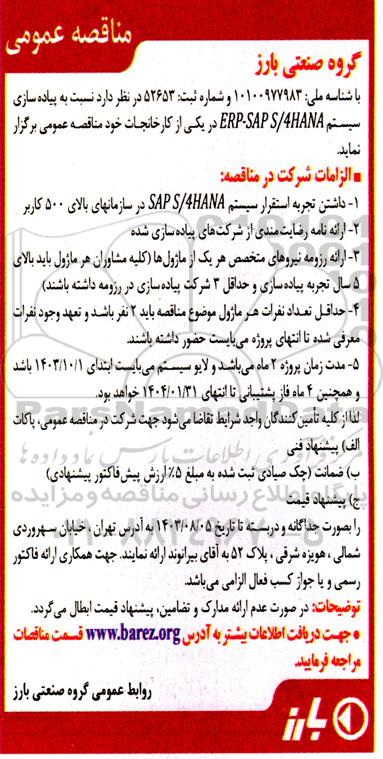 مناقصه عمومی
گروه صنعتی بارز
با شناسه ملی: ۱۰۱۰۰۹۷۷۹۸۳ و شماره ثبت: ۵۲۶۵۳ در نظر دارد نسبت به پیاده سازی
سیستم ERP-SAP S/4HANA در یکی از کارخانجات خود مناقصه عمومی برگزار
نماید.
■ الزامات شرکت در مناقصه:
۱- داشتن تجربه استقرار سیستم SAP S/4HANA در سازمانهای بالای ۵۰۰ کاربر
۲- ارائه نامه رضایت مندی از شرکت‌های پیاده‌سازی شده
۳- ارائه رزومه نیروهای متخصص هر یک از ماژول‌ها (کلیه مشاوران هر ماژول باید بالای
۵ سال تجربه پیاده‌سازی و حداقل ۳ شرکت پیاده‌سازی در رزومه داشته باشند)
۴- حداقل تعداد نفرات هر ماژول موضوع مناقصه باید ۲ نفر باشد و تعهد وجود نفرات
معرفی شده تا انتهای پروژه می‌بایست حضور داشته باشند.
۵- مدت زمان پروژه ۲ ماه می‌باشد و لایو سیستم می‌بایست ابتدای ۱۴۰۳/۱۰/۱ باشد
و همچنین ۴ ماه فاز پشتیبانی تا انتهای ۱۴۰۴/۰۱/۳۱ خواهد بود.
لذا از کلیه تامین کنندگان واجد شرایط تقاضا می‌شود جهت شرکت در مناقصه عمومی، پاکات
الف) پیشنهاد فنی
ب) ضمانت (چک صیادی ثبت شده به مبلغ ۵٪ ارزش پیش‌فاکتور پیشنهادی)
ج) پیشنهاد قیمت
را بصورت جداگانه و دربسته تا تاریخ ۱۴۰۳/۰۸/۰۵ به آدرس تهران ، خیابان سهروردی
شمالی ، هویزه شرقی ، پلاک ۵۲ به آقای بیرانوند ارائه نمایند. جهت همکاری ارائه فاکتور
رسمی و یا جواز کسب فعال الزامی می‌باشد.
توضیحات: در صورت عدم ارائه مدارک و تضامین، پیشنهاد قیمت ابطال می‌گردد.
● جهت دریافت اطلاعات بیشتر به آدرس www.barez.org قسمت مناقصات
مراجعه فرمایید.
روابط عمومی گروه صنعتی بارز
بارز